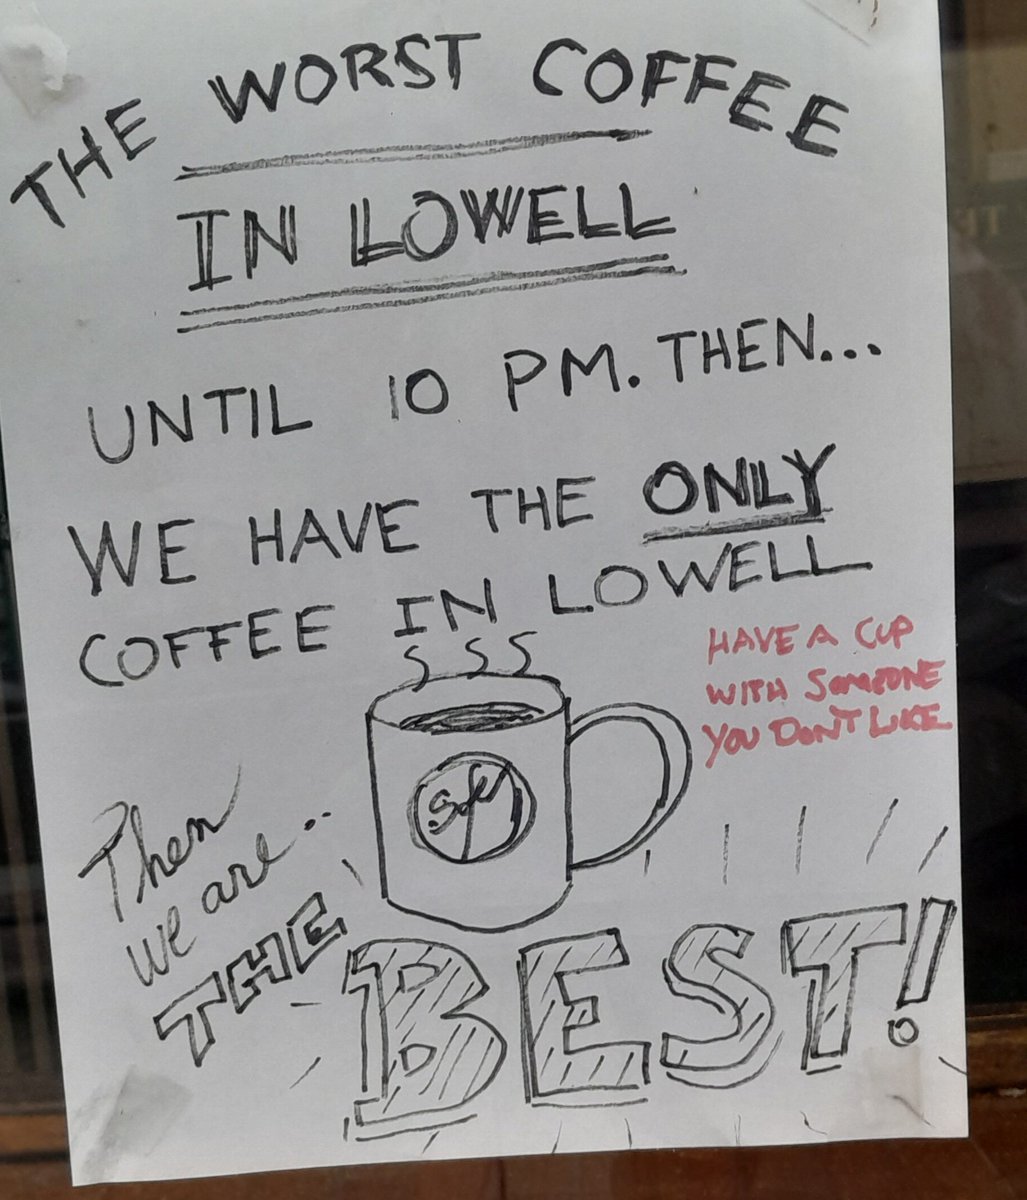 THE WORST COFFEE
IN LOWELL
UNTIL 10 PM. THEN...
WE HAVE THE ONLY
COFFEE IN LOWELL
HAVE A CUP
WITH SOMEONE
YOU DON'T LIKE
Then
we are..
THE
BEST!